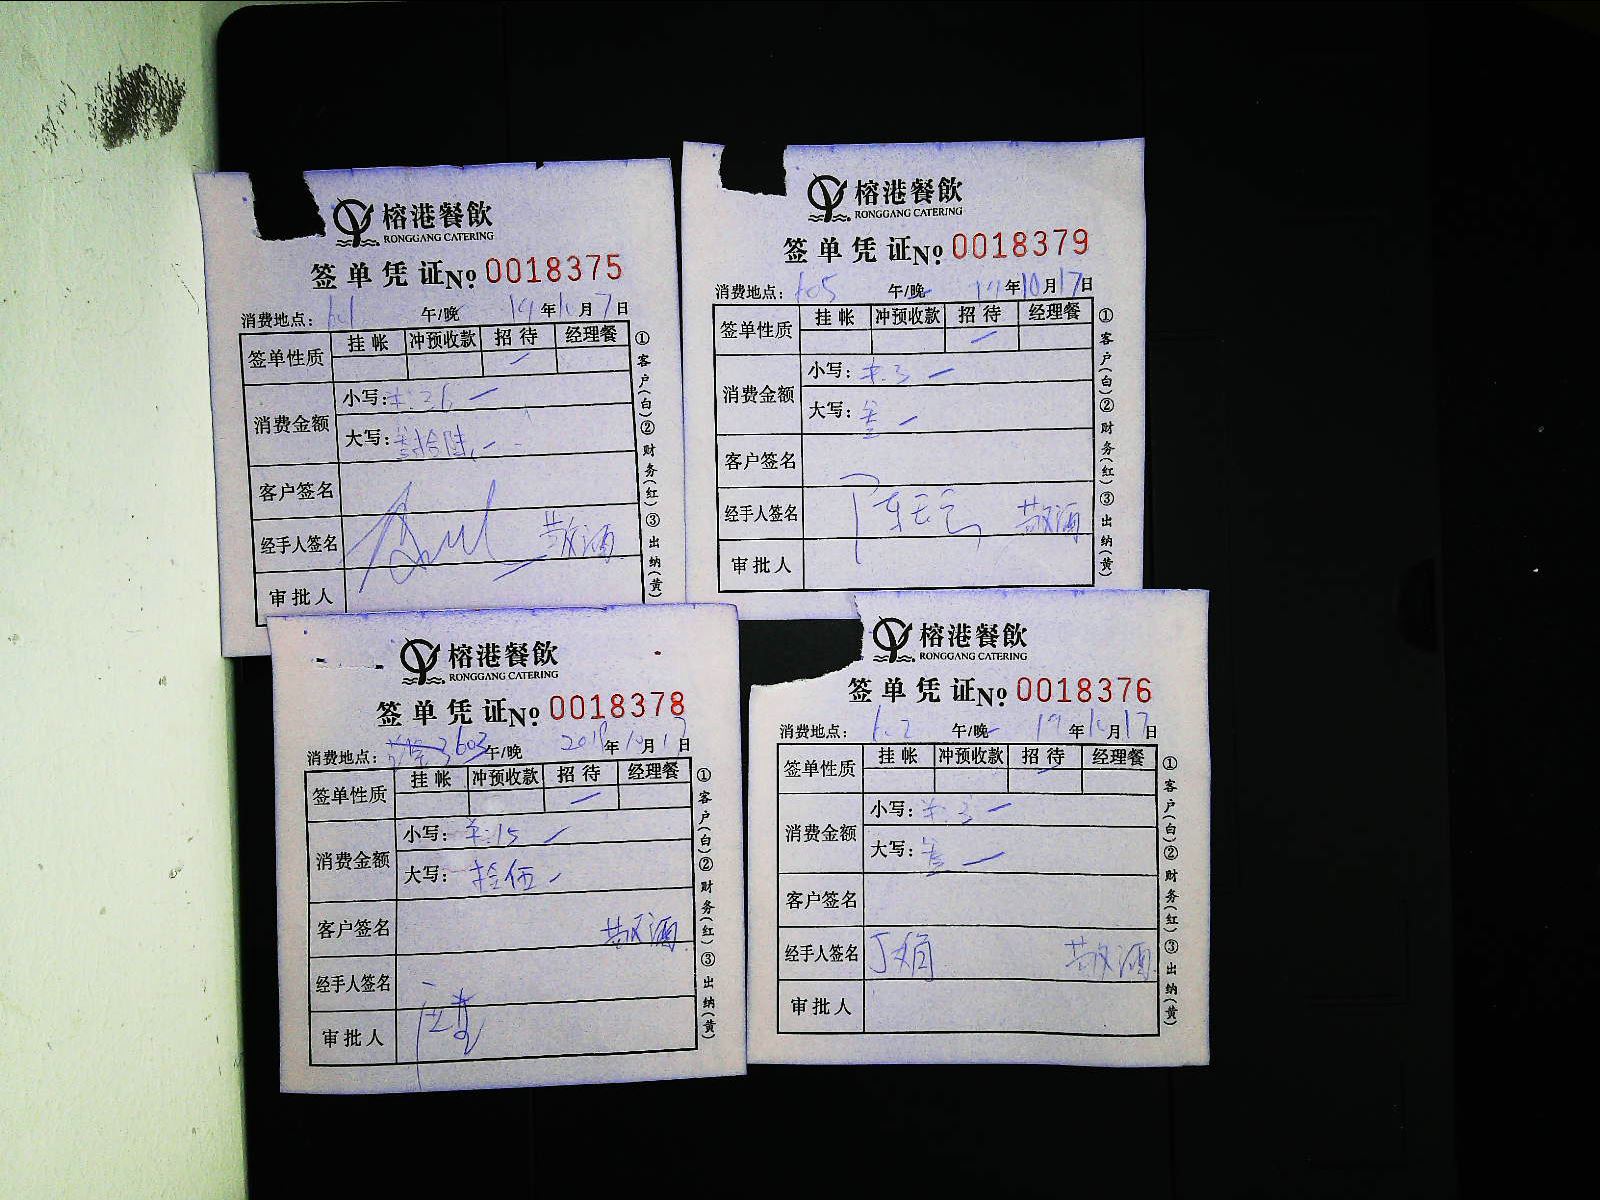 榕港餐飲
RONGGANG CATERING
签单凭证№ 0018375
消费地点: 午/晚 19年10月7日
签单性质 挂帐 冲预收款 招待 经理餐
消费金额
小写: 36
大写: 叁拾陆
客户签名
经手人签名 敬酒
审批人
①客户(白)②财务(红)③出纳(黄)
榕港餐飲
RONGGANG CATERING
签单凭证№ 0018379
消费地点: 605 午/晚 19年10月17日
签单性质 挂帐 冲预收款 招待 经理餐
消费金额
小写: 3
大写: 叁
客户签名
经手人签名 敬酒
审批人
①客户(白)②财务(红)③出纳(黄)
榕港餐飲
RONGGANG CATERING
签单凭证№ 0018378
消费地点: 603 午/晚 2019年10月17日
签单性质 挂帐 冲预收款 招待 经理餐
消费金额
小写: 15
大写: 拾伍
客户签名 敬酒
经手人签名
审批人
①客户(白)②财务(红)③出纳(黄)
榕港餐飲
RONGGANG CATERING
签单凭证№ 0018376
消费地点: 602 午/晚 19年10月17日
签单性质 挂帐 冲预收款 招待 经理餐
消费金额
小写: 3
大写: 叁
客户签名
经手人签名 敬酒
审批人
①客户(白)②财务(红)③出纳(黄)